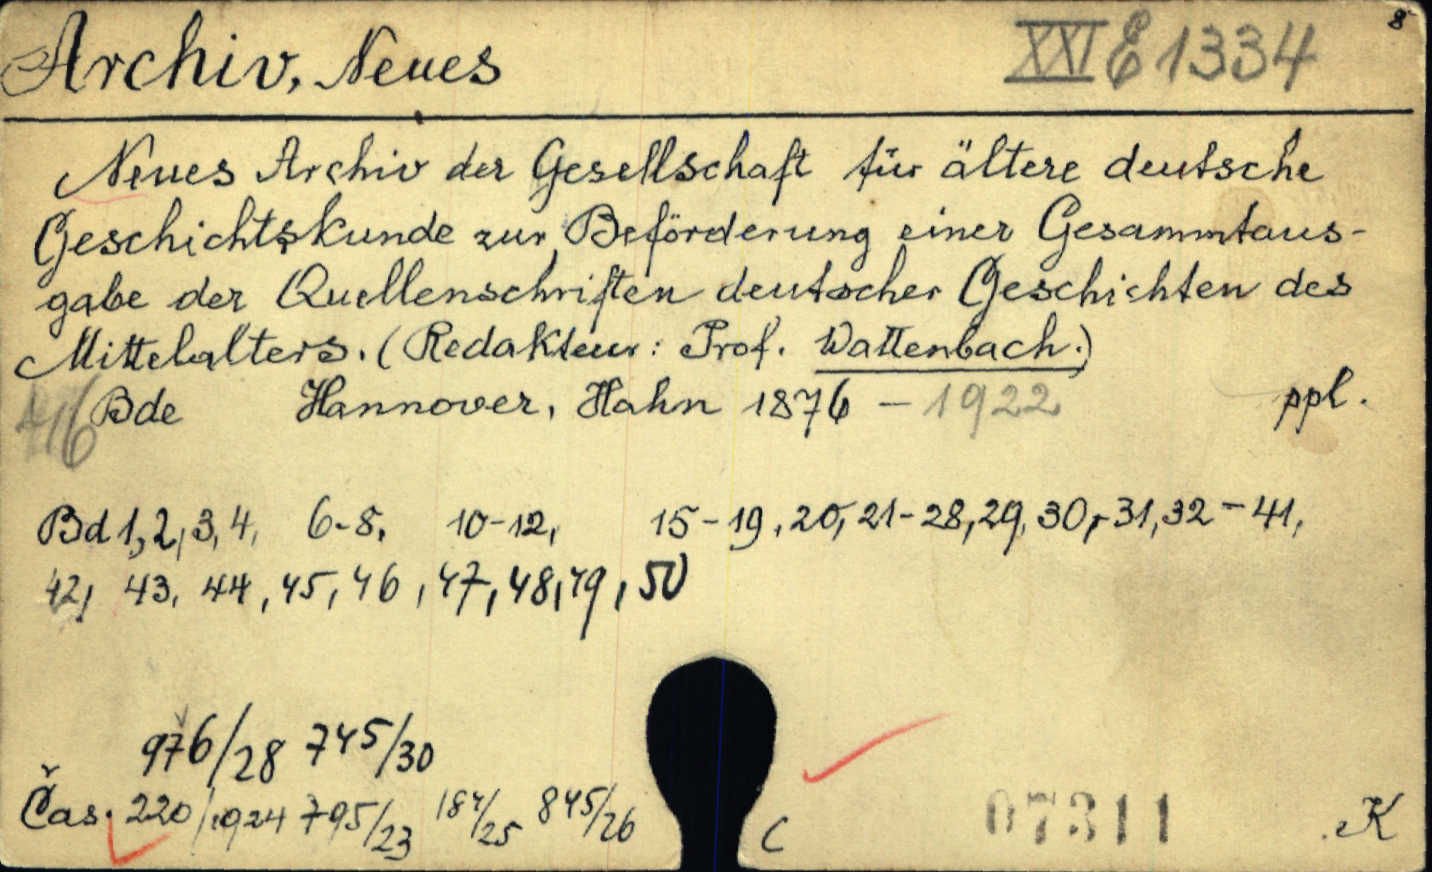 8
Archiv, Neues XXI E 1334
Neues Archiv der Gesellschaft für ältere deutsche
Geschichtskunde zur Beförderung einer Gesammtaus-
gabe der Quellenschriften deutscher Geschichten des
Mittelalters. (Redakteur: Prof. Wattenbach.)
Bde Hannover, Hahn 1876 - 1922 ppl.
Bd 1, 2, 3, 4, 6-8, 10-12, 15-19, 20, 21-28, 29, 30, 31, 32-41,
42, 43, 44, 45, 46, 47, 48, 49, 50
976/28 745/30
Čas. 220/1924 795/23 187/25 845/26 C 07311 K